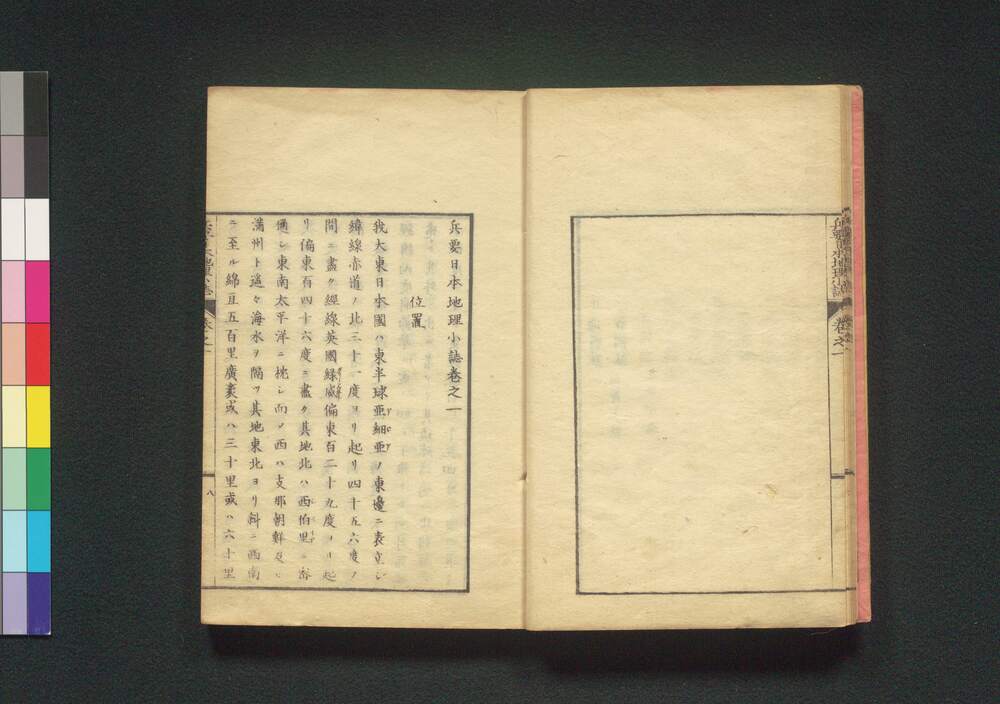 兵要日本地理小誌
卷之一
兵要日本地理小誌卷之一
位置
我大東日本國ハ東半球亜細亜ノ東邊ニ表立シ
緯線赤道ノ北三十一度ヨリ起リ四十五六度ノ
間ニ盡ク經線英國緑威偏東百二十九度ヨリ起
リ偏東百四十六度ニ盡ク其地北ハ西伯里ニ
通シ東南太平洋ニ枕シ而ノ西ハ支那朝鮮及ヒ
満州ト遥々海水ヲ隔ツ其地東北ヨリ斜ニ西南
ニ至ル綿亘五百里廣袤或ハ三十里或ハ六十里
八